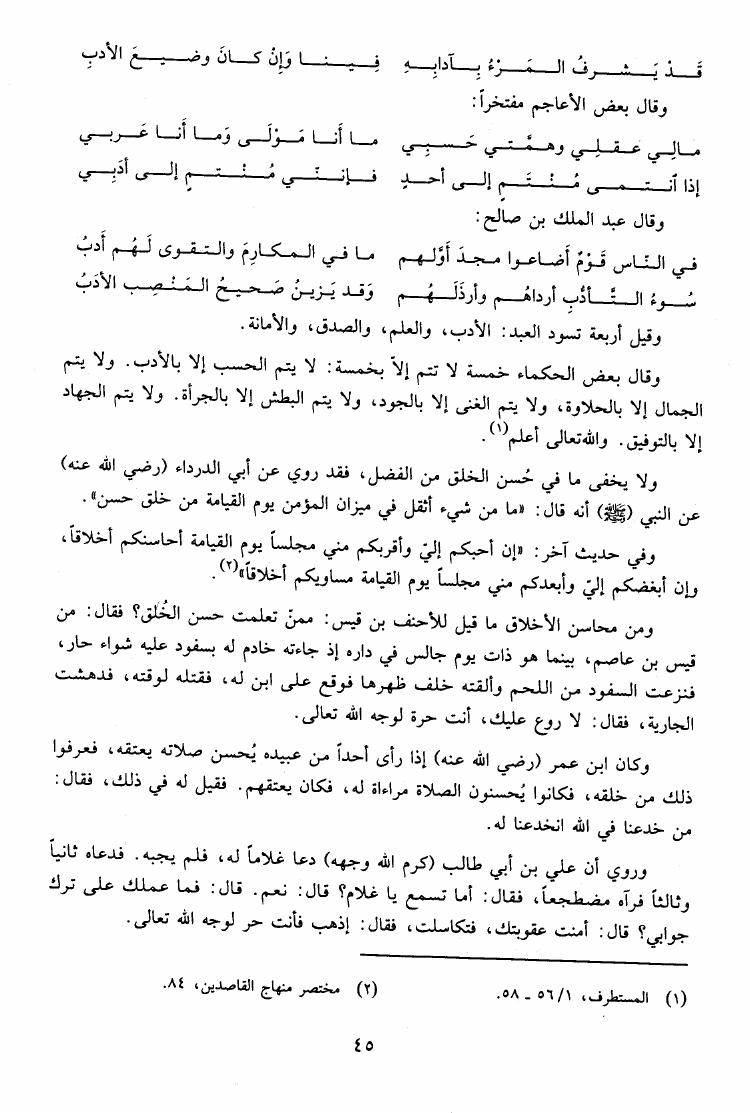 قَـدْ يَـشـرفُ الـمَـرْءُ بِـآدابِـهِ فِـيـنـا وَإِنْ كـانَ وضـيـعَ الأدبِ
وقال بعض الأعاجم مفتخراً:
مـالِـي عـقـلِـي وهـمَّـتـي حَـسـبِـي مـا أَنـا مَـوْلَـى وَمـا أَنـا عَـربـي
إذا ٱنـتـمـى مُـنْـتَـمٍ إلى أحـدٍ فـإنـنَّـي مُـنْـتـمٍ إلـى أدَبِـي
وقال عبد الملك بن صالح:
في الـنَّـاس قَـوْمٌ أضـاعـوا مـجـدَ أوَّلـهـم مـا فـي الـمـكـارِمَ والـتـقـوى لَـهُـم أدبُ
سُـوءُ الـتَّـأدُّبِ أرداهُـم وأرذَلَـهُـم وَقـد يَـزيـنُ صَـحـيـحُ الـمَـنْـصِـب الأدَبُ
وقيل أربعة تسود العبد: الأدب، والعلم، والصدق، والأمانة.
وقال بعض الحكماء خمسة لا تتم إلاّ بخمسة: لا يتم الحسب إلا بالأدب. ولا يتم
الجمال إلا بالحلاوة، ولا يتم الغنى إلا بالجود، ولا يتم البطش إلا بالجرأة. ولا يتم الجهاد
إلا بالتوفيق. والله تعالى أعلم(١).
ولا يخفى ما في حُسن الخلق من الفضل، فقد روي عن أبي الدرداء (رضي الله عنه)
عن النبي (ﷺ) أنه قال: «ما من شيء أثقل في ميزان المؤمن يوم القيامة من خلق حسن».
وفي حديث آخر: «إن أحبكم إليّ وأقربكم مني مجلساً يوم القيامة أحاسنكم أخلاقاً،
وإن أبغضكم إليّ وأبعدكم مني مجلساً يوم القيامة مساويكم أخلاقاً»(٢).
ومن محاسن الأخلاق ما قيل للأحنف بن قيس: ممنّ تعلمت حسن الخُلق؟ فقال: من
قيس بن عاصم، بينما هو ذات يوم جالس في داره إذ جاءته خادم له بسفود عليه شواء حار،
فنزعت السفود من اللحم وألقته خلف ظهرها فوقع على ابن له، فقتله لوقته، فدهشت
الجارية، فقال: لا روع عليك، أنت حرة لوجه الله تعالى.
وكان ابن عمر (رضي الله عنه) إذا رأى أحداً من عبيده يُحسن صلاته يعتقه، فعرفوا
ذلك من خلقه، فكانوا يُحسنون الصلاة مراءاة له، فكان يعتقهم. فقيل له في ذلك، فقال:
من خدعنا في الله انخدعنا له.
وروي أن علي بن أبي طالب (كرم الله وجهه) دعا غلاماً له، فلم يجبه. فدعاه ثانياً
وثالثاً فرآه مضطجعاً، فقال: أما تسمع يا غلام؟ قال: نعم. قال: فما عملك على ترك
جوابي؟ قال: أمنت عقوبتك، فتكاسلت، فقال: إذهب فأنت حر لوجه الله تعالى.
(١) المستطرف، ٥٦/١ ـ ٥٨. (٢) مختصر منهاج القاصدين، ٨٤.
٤٥